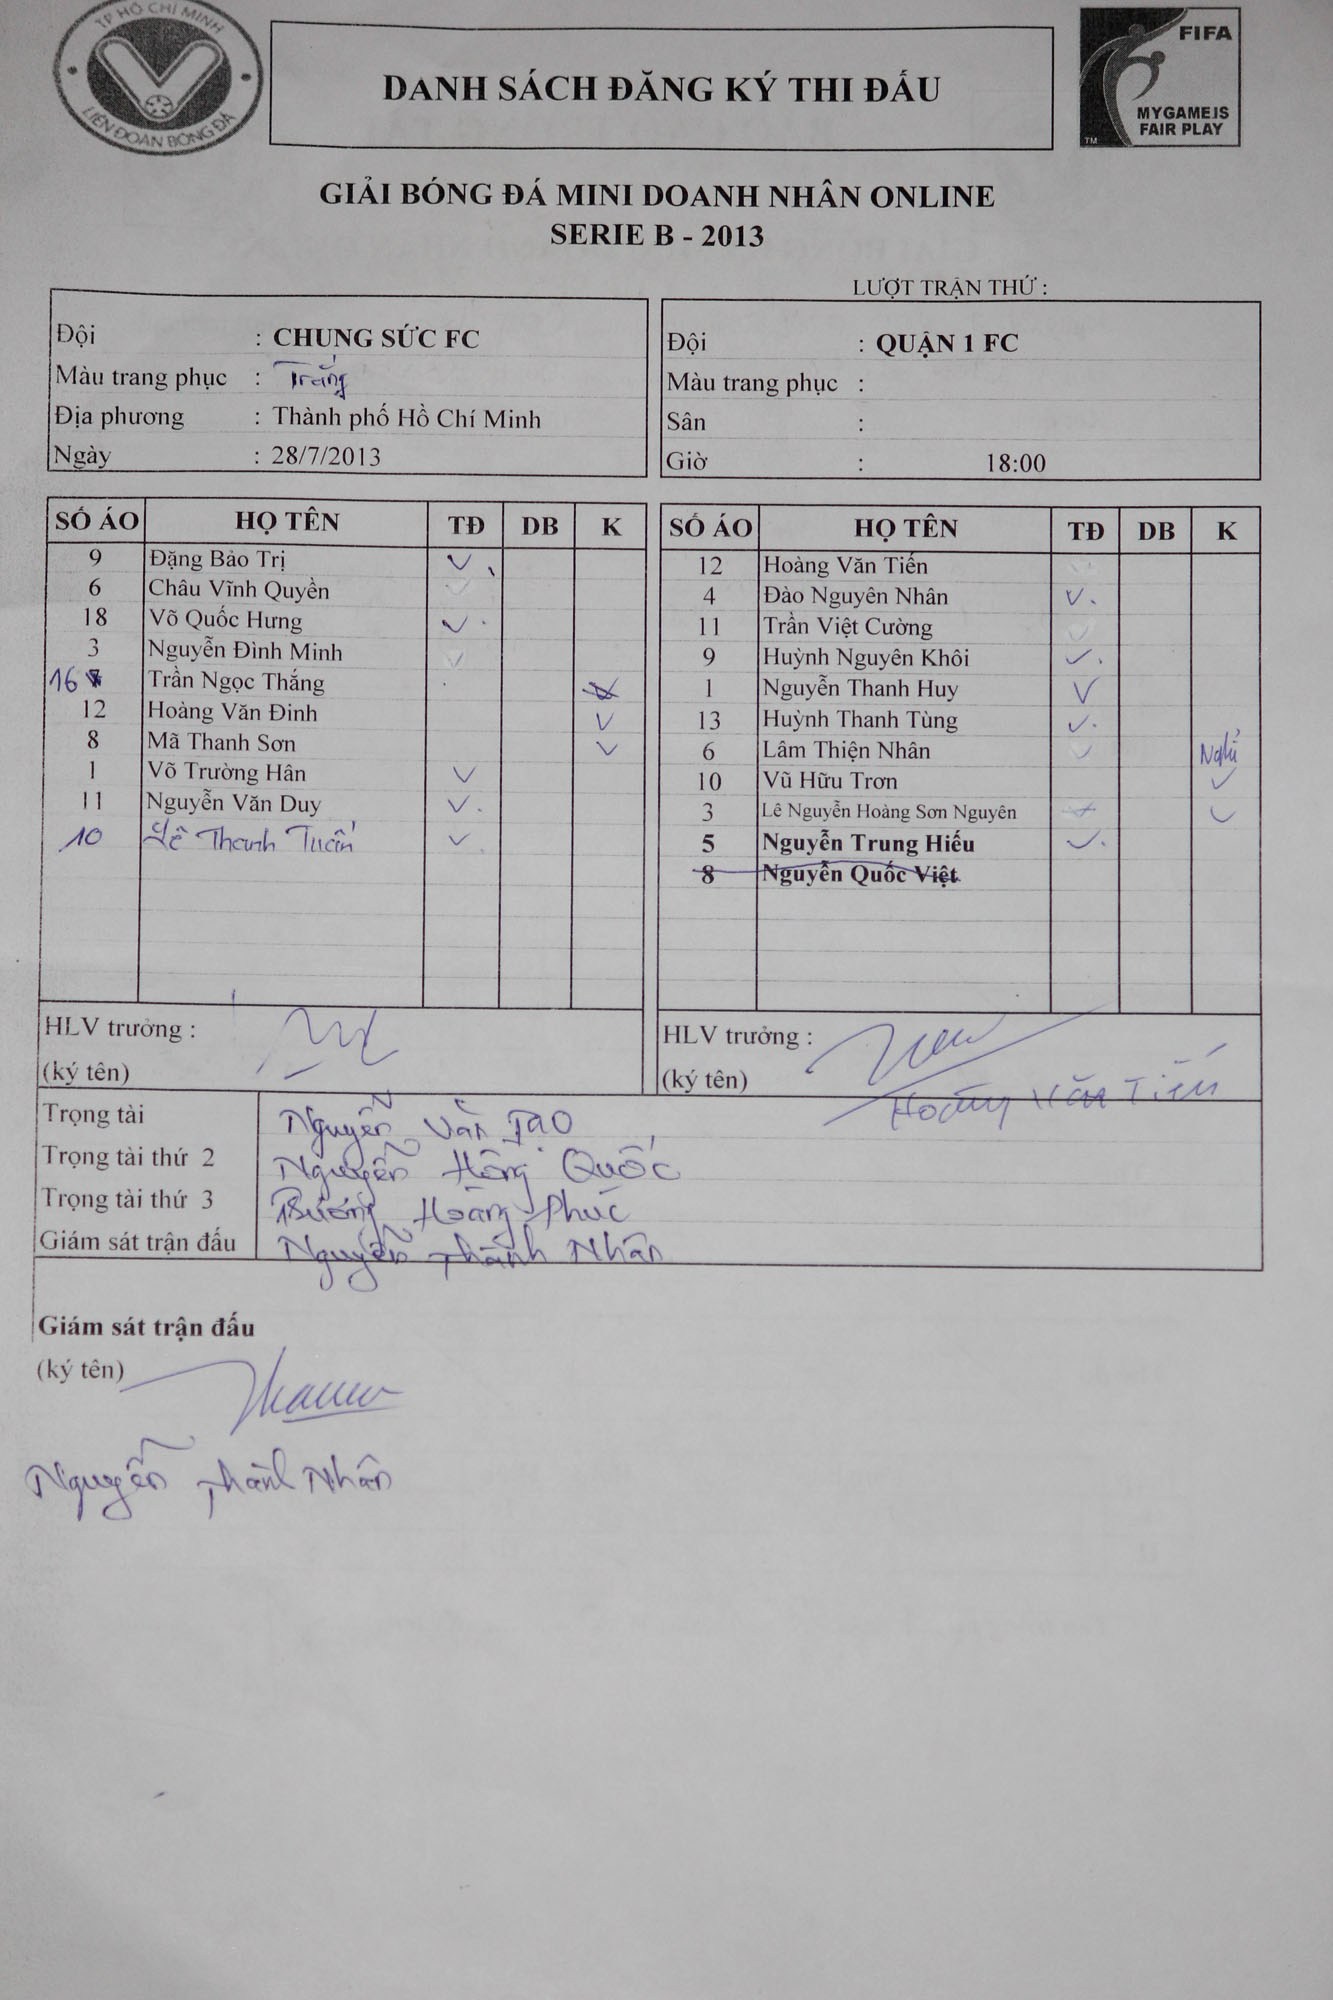 TP HỒ CHÍ MINH
LIÊN ĐOÀN BÓNG ĐÁ
DANH SÁCH ĐĂNG KÝ THI ĐẤU
FIFA
MY GAME IS
FAIR PLAY
TM
GIẢI BÓNG ĐÁ MINI DOANH NHÂN ONLINE
SERIE B - 2013
LƯỢT TRẬN THỨ :
Đội : CHUNG SỨC FC
Màu trang phục : Trắng
Địa phương : Thành phố Hồ Chí Minh
Ngày : 28/7/2013
Đội : QUẬN 1 FC
Màu trang phục :
Sân :
Giờ : 18:00
SỐ ÁO HỌ TÊN TĐ DB K
9 Đặng Bảo Trị
6 Châu Vĩnh Quyền
18 Võ Quốc Hưng
3 Nguyễn Đình Minh
16 Trần Ngọc Thắng
12 Hoàng Văn Đinh
8 Mã Thanh Sơn
1 Võ Trường Hân
11 Nguyễn Văn Duy
10 Lê Thanh Tuấn
SỐ ÁO HỌ TÊN TĐ DB K
12 Hoàng Văn Tiến
4 Đào Nguyên Nhân
11 Trần Việt Cường
9 Huỳnh Nguyên Khôi
1 Nguyễn Thanh Huy
13 Huỳnh Thanh Tùng
6 Lâm Thiện Nhân Nghỉ
10 Vũ Hữu Trơn
3 Lê Nguyễn Hoàng Sơn Nguyên
5 Nguyễn Trung Hiếu
8 Nguyễn Quốc Việt
HLV trưởng :
(ký tên)
HLV trưởng :
(ký tên) Hoàng Văn Tiến
Trọng tài Nguyễn Văn Tạo
Trọng tài thứ 2 Nguyễn Hồng Quốc
Trọng tài thứ 3 Hoàng Phúc
Giám sát trận đấu Nguyễn Thành Nhân
Giám sát trận đấu
(ký tên)
Nguyễn Thành Nhân